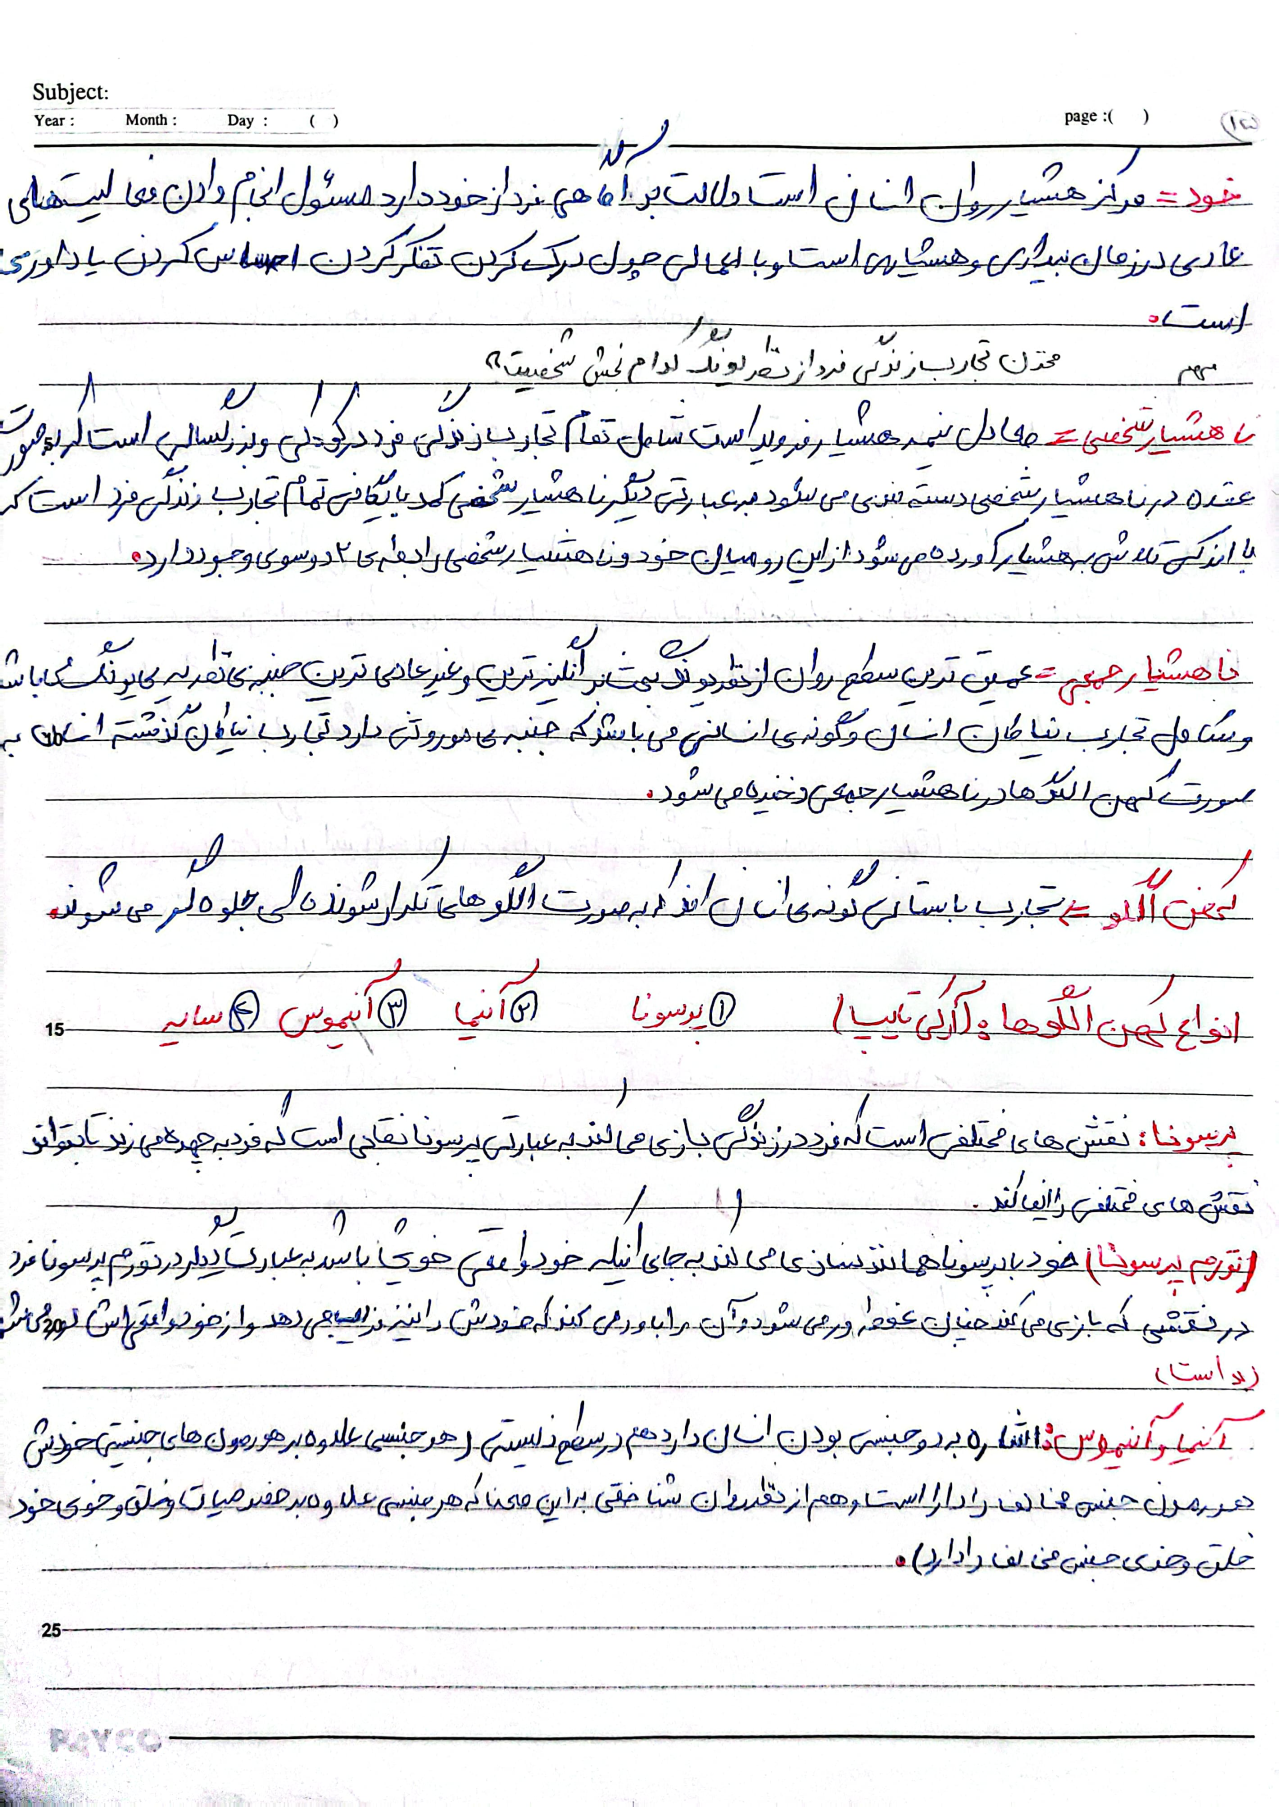 Subject:
Year : Month : Day : ( ) page :( ) ۱۵
خود = مرکز هشیار روان انسانی است دلالت بر آگاهی فرد از خود دارد مسئول انجام دادن فعالیت‌های
عادی در زمان بیداری و هشیاری است و با اعمالی چون درک کردن تفکر کردن احساس کردن یادآوری
است.
مهم مخزن تجارب زندگی فرد از نظر یونگ کدام بخش شخصیت؟
ناهشیار شخصی = معادل نیمه هشیار فروید است شامل تمام تجارب زندگی فرد در کودکی و بزرگسالی است که به صورت
عقده در ناهشیار شخصی دسته بندی می شود به عبارتی دیگر ناهشیار شخصی کمد بایگانی تمام تجارب زندگی فرد است که
با اندکی تلاش به هشیار آورده می شود از این رو میان خود و ناهشیار شخصی رابطه ی ۲ دوسوی وجود دارد.
ناهشیار جمعی = عمیق ترین سطح روان از نظر یونگ بحث بر انگیز ترین و غیر عادی ترین جنبه ی نظریه ی یونگ می باشد
و شامل تجارب نیاکان انسان و گونه ی انسانی می باشد که جنبه ی موروثی دارد تجارب نیاکان گذشته انسان به
صورت کهن الگو ها در ناهشیار جمعی ذخیره می شود.
کهن الگو = تجارب باستانی گونه ی انسان اند که به صورت الگو های تکرار شونده ای جلوه گر می شوند.
15 انواع کهن الگوها: (آرکی تایپ) ① پرسونا ② آنیما ③ آنیموس ④ سایه
پرسونا: نقش های مختلفی است که فرد در زندگی بازی می کند به عبارتی پرسونا نقابی است که فرد به چهره می زند تا بتواند
نقش های مختلفی را ایفا کند.
(تورم پرسونا) خود با پرسونا همانند سازی می کند به جای اینکه خود واقعی خویش باشد به عبارت دیگر در تورم پرسونا فرد
در نقشی که بازی می کند چنان غوطه ور می شود و آن را باور می کند که خودش را نیز فریب می دهد و از خود واقعی اش دور می شود
(بد است)
آنیما و آنیموس: اشاره به دو جنسی بودن انسان دارد هم در سطح زیستی (هر جنسی علاوه بر هورمون های جنسیتی خودش
هورمون جنس مخالف را دارا است و هم از نظر روان شناختی به این معنا که هر جنسی علاوه بر خصوصیات و خلق و خوی خود
خلق و خوی جنس مخالف را دارد).
25
PAYCO